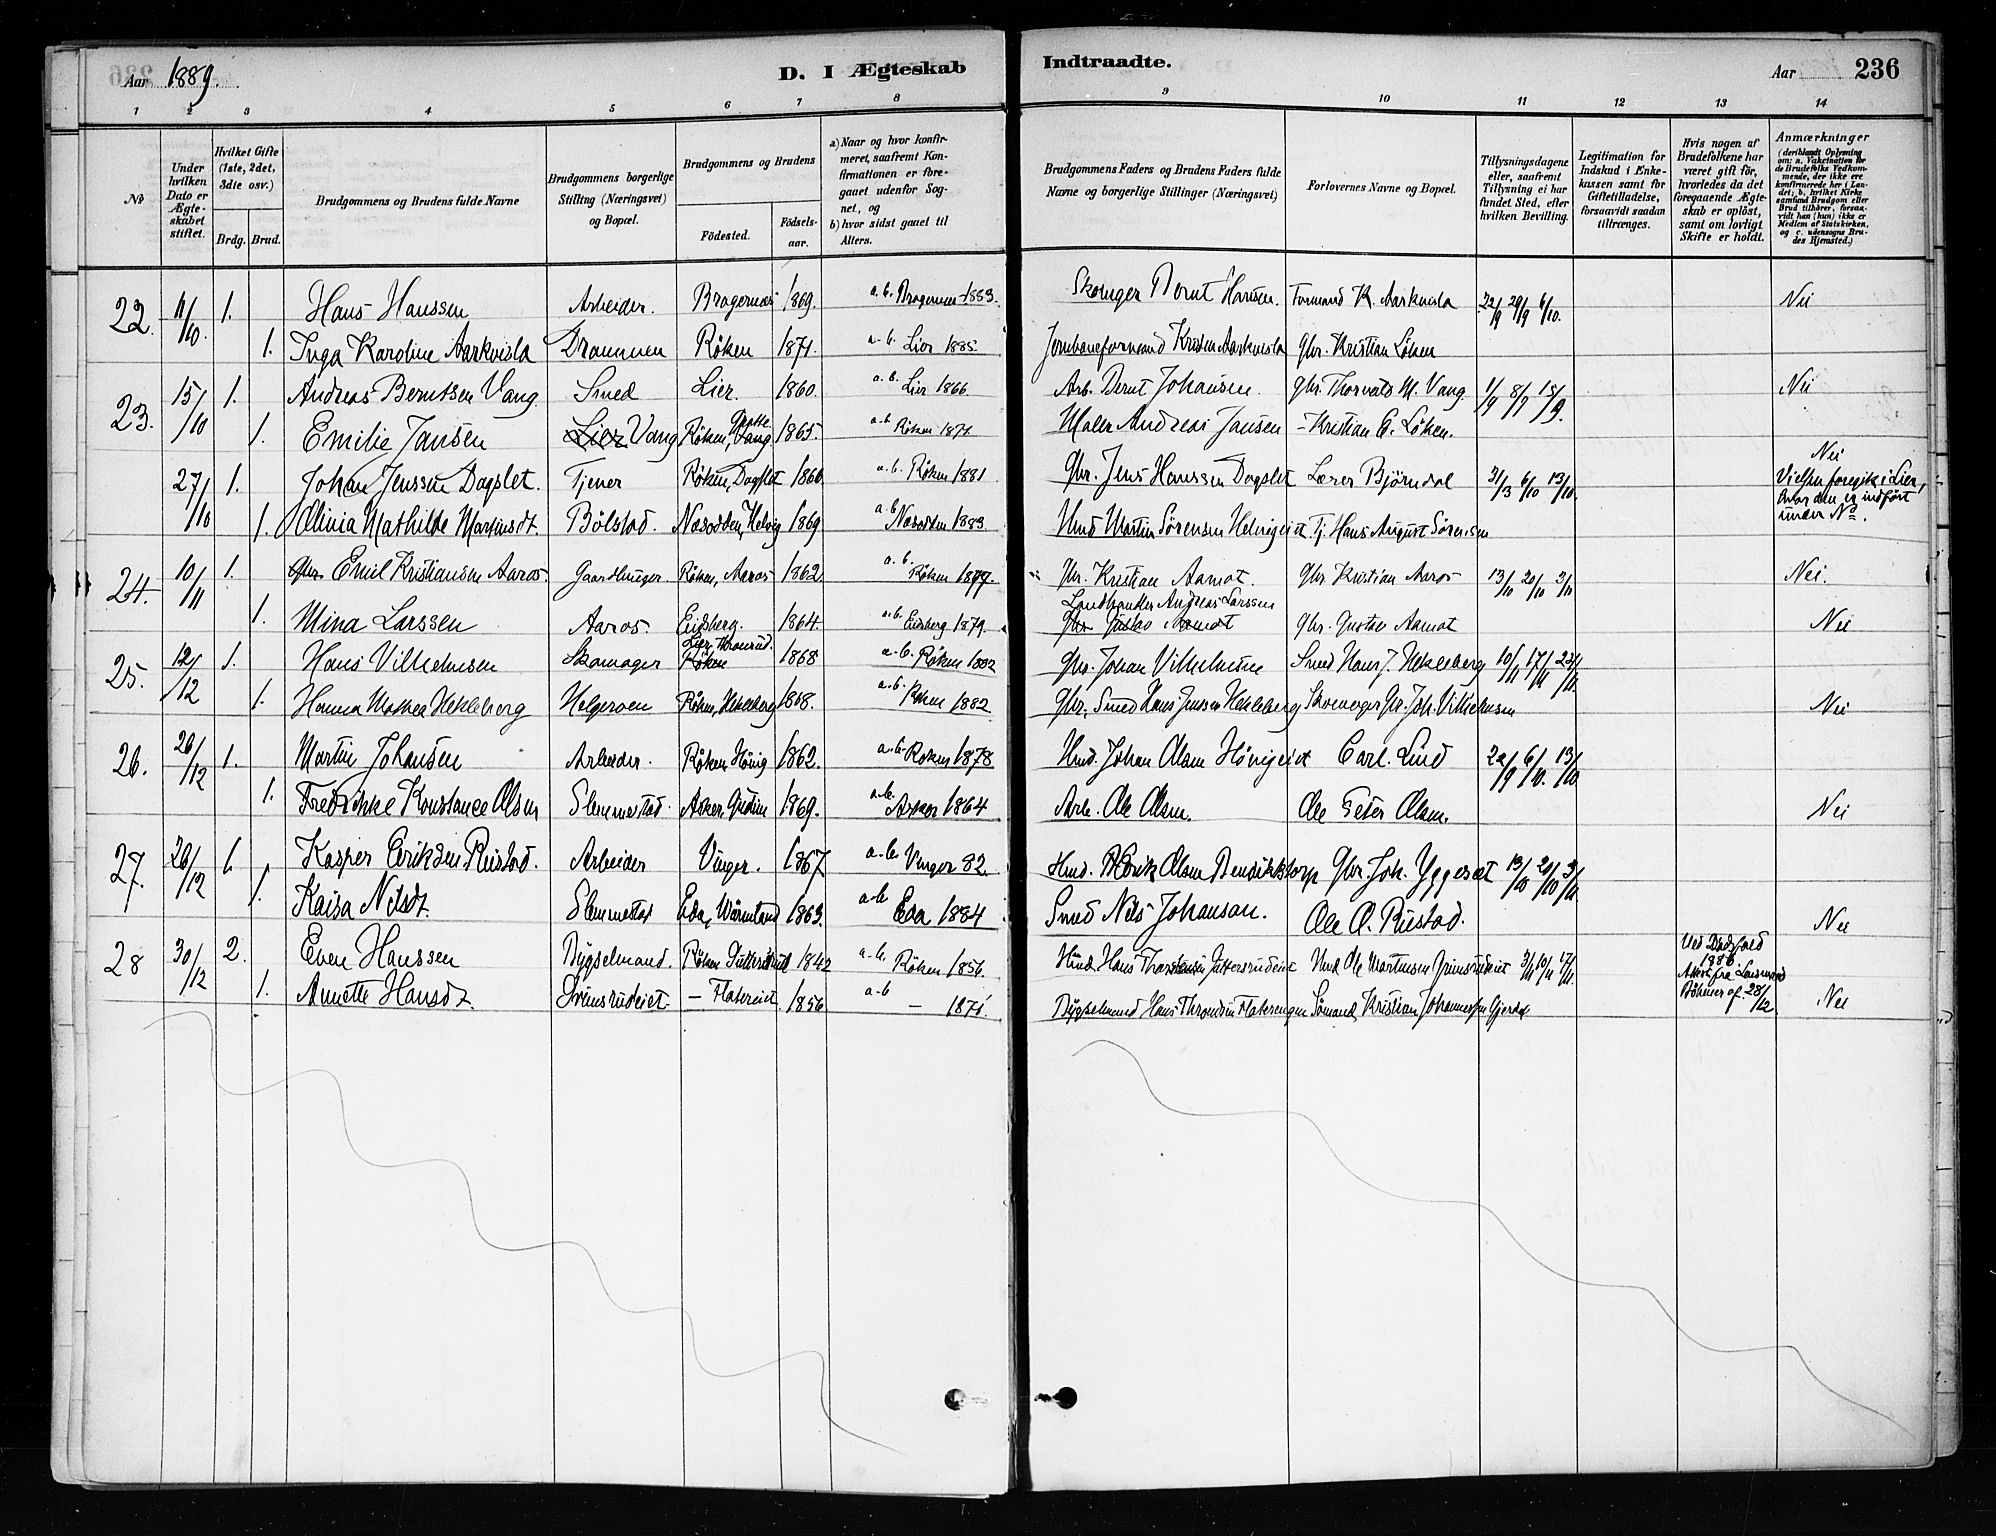 Aar 1889.
D. I Ægteskab Indtraadte.
Aar 236
1 2 3 4 5 6 7 8 9 10 11 12 13 14
No
Under hvilken Dato er Ægteskabet stiftet.
Hvilket Gifte (1ste, 2det, 3die osv.)
Brdg. Brud.
Brudgommens og Brudens fulde Navne
Brudgommens borgerlige Stilling (Næringsvei) og Bopæl.
Brudgommens og Brudens
Födested. Födselsaar.
a) Naar og hvor konfirmeret, saafremt Konfirmationen er foregaaet udenfor Sognet, og
b) hvor sidst gaaet til Alters.
Brudgommens Faders og Brudens Faders fulde Navne og borgerlige Stillinger (Næringsvei)
Forlovernes Navne og Bopæl.
Tillysningsdagene eller, saafremt Tillysning ei har fundet Sted, efter hvilken Bevilling.
Legitimation for Indskud i Enkekassen samt for Giftetilladelse, forsaavidt saadan tiltrænges.
Hvis nogen af Brudefolkene har været gift för, hvorledes da det foregaaende Ægteskab er oplöst, samt om lovligt Skifte er holdt.
Anmærkninger (deriblandt Oplysning om: a. Vakcination for de Brudefolks Vedkommende, der ikke ere konfirmerede her i Landet; b. hvilket Kirkesamfund Brudgom eller Brud tilhörer, forsaavidt han (hun) ikke er Medlem af Statskirken, og c. udensogns Brudes Hjemsted.)
22. 11/10. 1. Hans Hanssen Arbeider. Bragernæs 1869. a. b. Bragernæs 1883. Bernt Hansen. Formand K. Aarkvisla 22/9 29/9 6/10. Nei
1. Inga Karoline Aarkvisla Drammen Röken 1871. a-b. Lier 1885. Jernbaneformand Kristen Aarkvisla Gbr. Kristian Löken
23. 15/10 1. Andreas Berntsen Vang. Smed Lier. 1860. a. b. Lier 1866. Arb. Bernt Johansen Gbr. Thorvald M. Vang. 1/9 8/9 15/9. Nei
1. Emilie Jansen Lier Vang Röken, Vang 1865. a-b Röken 1871 Maler Andreas Jansen – Kristian G. Löken.
27/10 1. Johan Jenssen Dagslet. Tjener Röken, Dagslet 1866 a.-b. Röken 1881 Gbr. Jens Hanssen Dagslet Lærer Björndal 31/3 6/10 13/10. Nei
Vielsen foregik i Lier, hvor den er indfört under No.
1. Mathilde Martinsdt. Bölstad. Næsodden, Helvig 1869 a-b Næsodden 1883. Hmd Martin Sörensen Helvigeiet Tj. Hans August Sörensen
24. 10/11 1. Gbr. Emil Kristiansen Aaros. Gaardbruger. Röken, Aaros 1862 a.-b. Röken 1877. Gbr. Kristian Aamot. Gbr Kristian Aaros 13/10 20/10 3/11 Nei.
Landhandler Andreas Larssen
1. Mina Larssen Aaros. Eidsberg. 1864. a.b. Eidsberg 1879. Gbr Gustav Aamot Gbr. Gustav Aamot Nei
25. 12/12 1. Hans Vilhelmsen Skomager Lier Thronrud. Röken 1868 a-b. Röken 1882 Gbr. Johan Vilhelmsen Smed Hans J. Hekleberg 10/11 17/11 24/11.
1. Hanna Mathea Hekleberg Helgeroen Röken, Hekleberg 1868. a.b. Röken 1882 Gbr., Smed Hans Jensen Hekleberg Skomager Gbr. Joh. Vilhelmsen Nei
26. 26/12 1. Martin Johansen Arbeider. Röken Hönig 1862. a.-b. Röken 1878 Hmd. Johan Olsen Hönigeiet Carl. Lind 22/9 6/10. 13/10.
1. Fredrikke Konstance Olsen Slemmestad. Asker, 1869. a.b. Asker 1864 Arb. Ole Olsen. Ole Peter Olsen. Nei
27. 26/12 1. Kasper Eriksen Rustad. Arbeider Vinger. 1867 a.-b. Vinger 82. Hmd. Erik Olsen Bendikstorp Gbr. Joh. Yggeset 13/10 20/10 3/11.
1. Kaisa Nilsdt. Slemmestad Eda, Wärmland 1863. a-b Eda 1884 Smed Nils Johansan. Ole O. Rustad. Nei
28 30/12 2. Even Hanssen Bygselmand. Röken 1842 a.-b. Röken 1856. Hmd. Hans Thorstensen Guttersrudeiet Hmd Ole Martinsen Grimsrudeiet 3/11 10/11 17/11. Ved Dödsfald 1886 Attest fra Lensmand Böhmer af 28/12
1. Annette Hansdt. Grimsrudeiet. – Flatereiet 1856 a-b – 1871. Bygselmand Hans Thronsen Flaterengen Sömand Kristian Johannessen Gjerdal Nei